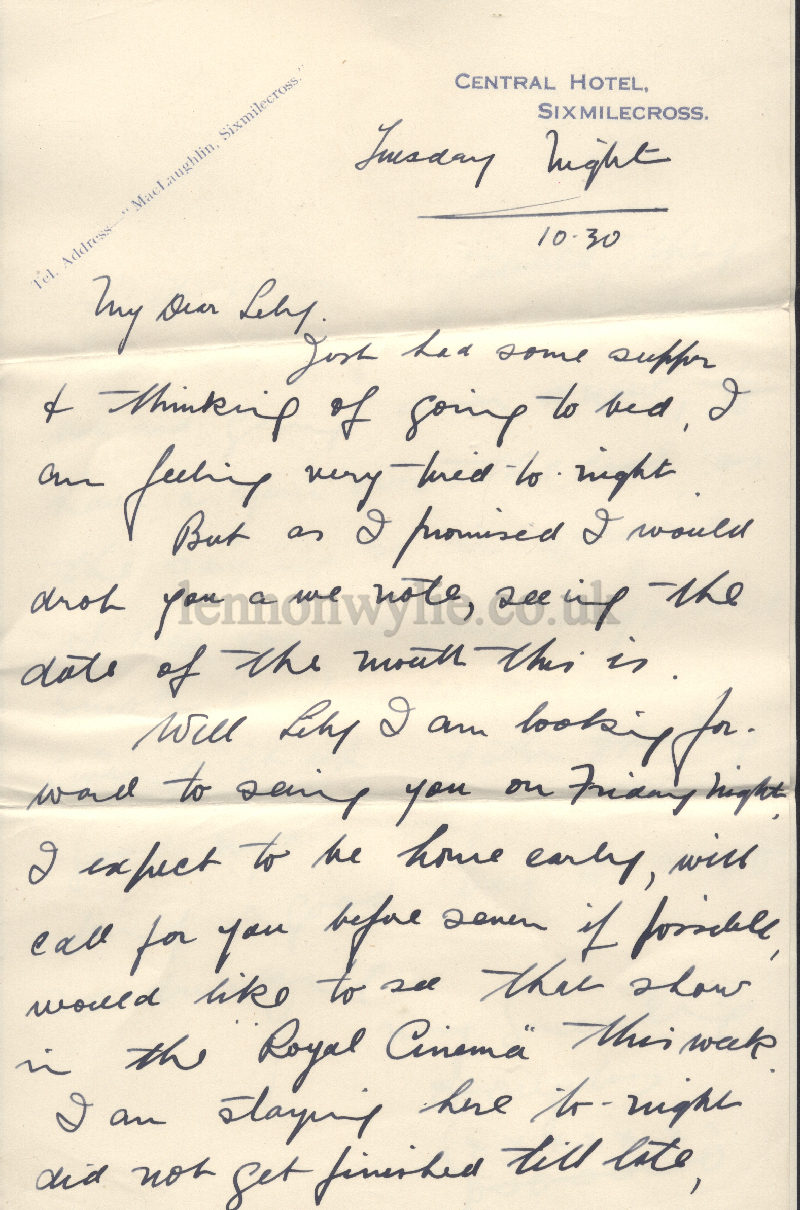 CENTRAL HOTEL,
SIXMILECROSS.
Tel. Address—"MacLaughlin, Sixmilecross."
Tuesday Night
10.30
My Dear Lily.
Just had some supper
& thinking of going to bed, I
am feeling very tired to-night
But as I promised I would
drop you a wee note, seeing the
date of the month this is.
Well Lily I am looking for-
ward to seeing you on Friday Night,
I expect to be home early, will
call for you before seven if possible,
would like to see that show
in the "Royal Cinema" this week.
I am staying here to-night
did not get finished till late,
lennonwylie.co.uk